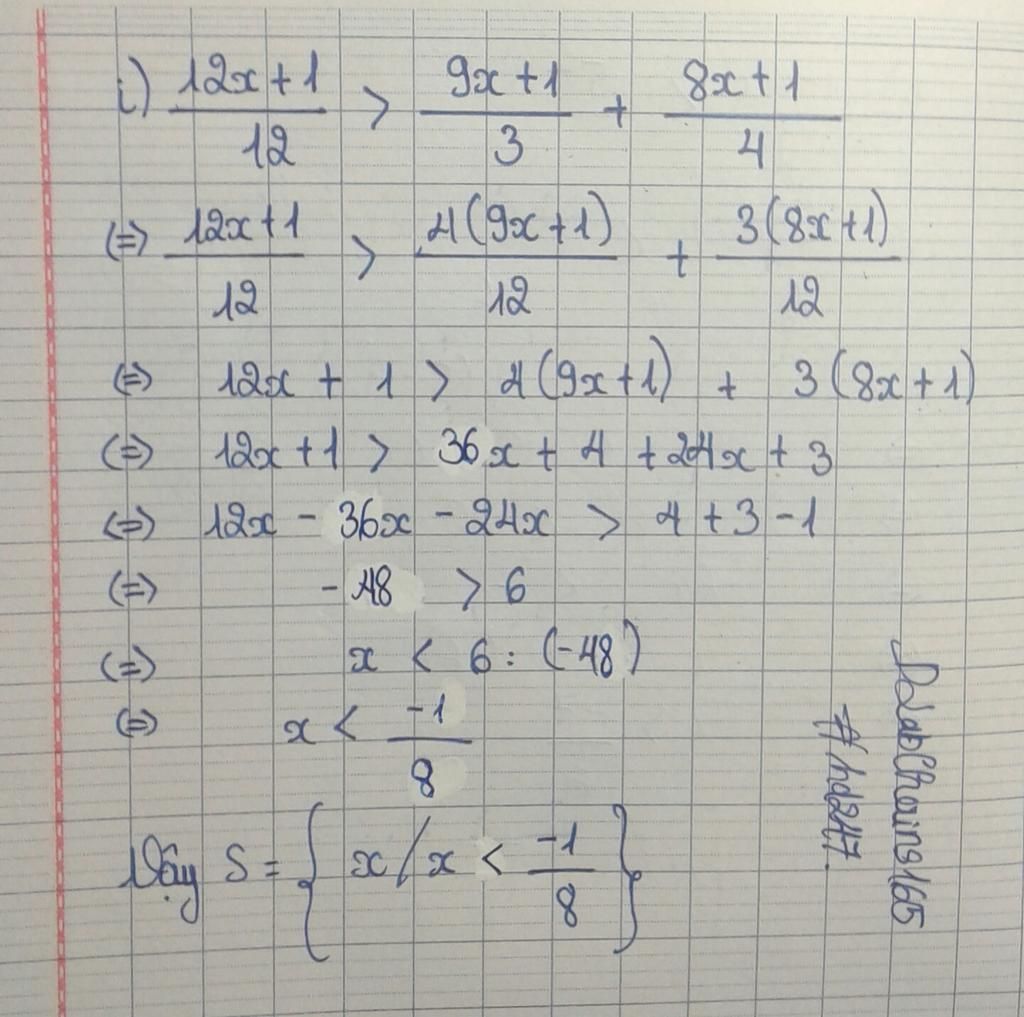 i) \frac{12x+1}{12} > \frac{9x+1}{3} + \frac{8x+1}{4}
(=) \frac{12x+1}{12} > \frac{4(9x+1)}{12} + \frac{3(8x+1)}{12}
(=) 12x + 1 > 4(9x+1) + 3(8x+1)
(=) 12x+1 > 36x + 4 + 24x + 3
(=) 12x - 36x - 24x > 4 + 3 - 1
(=) -48 > 6
(=) x < 6 : (-48)
(=) x < \frac{-1}{8}
Vậy S = { x / x < \frac{-1}{8} }
#hd247